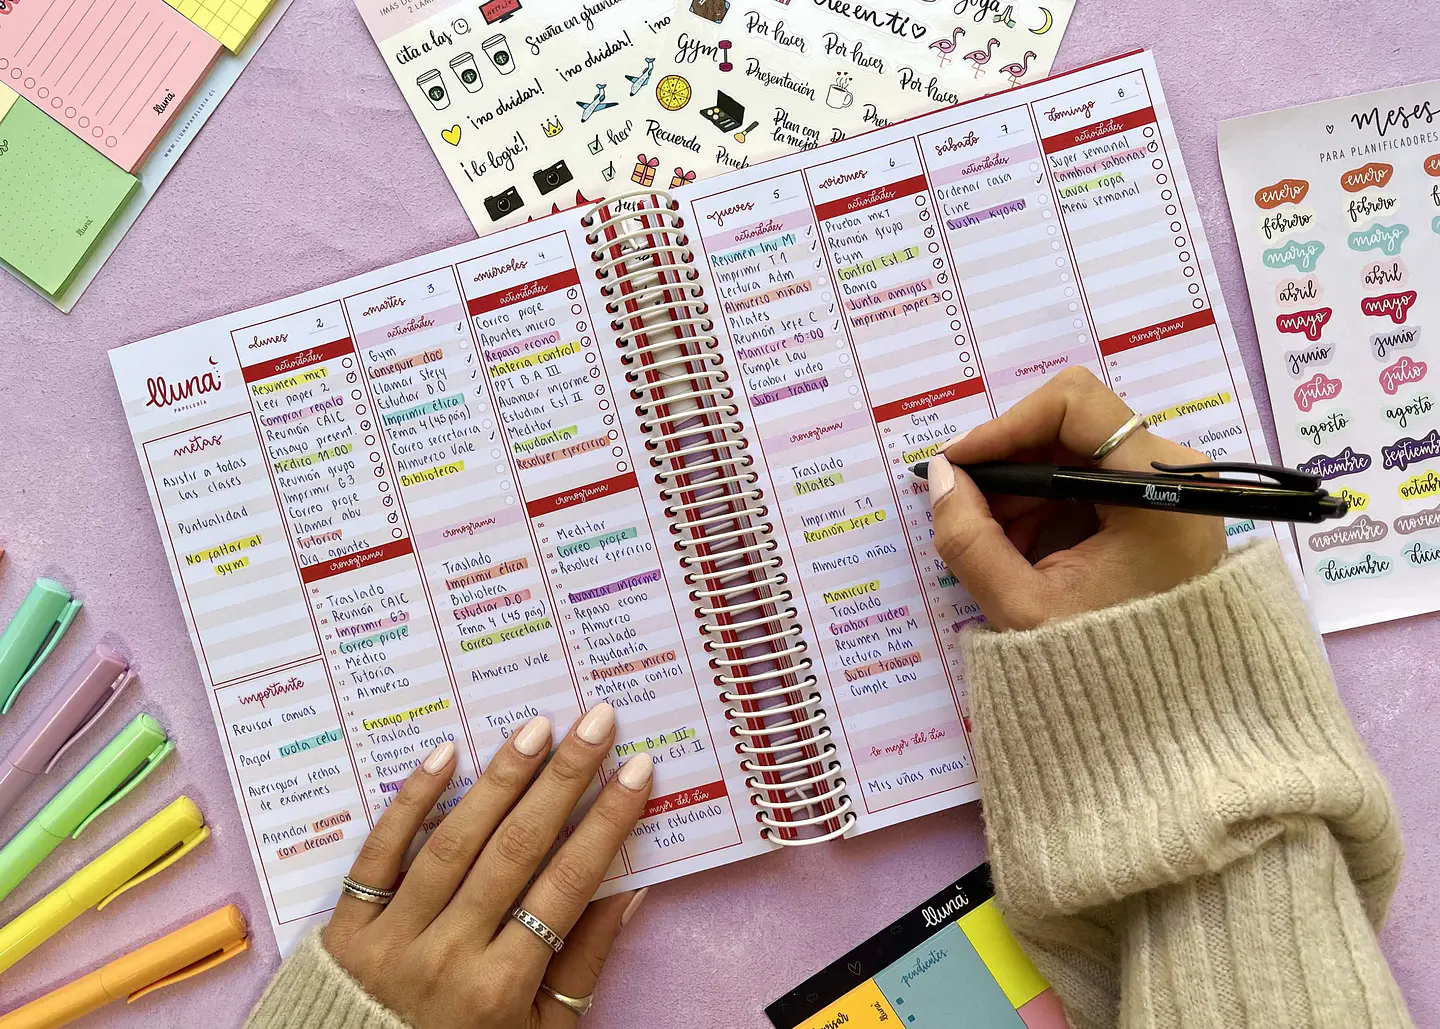 lluna
WWW.LLUNAPAPELERIA.CL
lluna
Cita a las
NETFLIX
Sueña en grande
¡no olvidar!
¡no olvidar!
¡lo logré!
hecho
Recuerda
Gym
Por hacer
Por hacer
Por hacer
Presentación
Plan con
la mejor
Cree en ti
lluna
PAPELERÍA
metas
Asistir a todas
las clases
Puntualidad
No faltar al
gym
importante
Revisar canvas
Pagar cuota celu
Averiguar fechas
de exámenes
Agendar reunión
con decano
lunes 2
actividades
Resumen MKT
Leer paper 2
Comprar regalo
Reunión CAIC
Ensayo present.
Médico 11:00
Reunión grupo
Imprimir G3
Correo profe
Llamar abu
Tutoría
Org. apuntes
cronograma
Traslado
Reunión CAIC
Imprimir G3
Correo profe
Médico
Tutoría
Almuerzo
Ensayo present.
Traslado
Comprar regalo
Resumen
martes 3
actividades
Gym
Conseguir doc
Llamar Stefy
Estudiar D.O
Imprimir ética
Tema 4 (45 pág)
Correo secretaria
Almuerzo Vale
Biblioteca
cronograma
Traslado
Imprimir ética
Biblioteca
Estudiar D.O
Tema 4 (45 pág)
Correo secretaria
Almuerzo Vale
Traslado
miércoles 4
actividades
Correo profe
Apuntes micro
Repaso econo
Materia control
PPT B.A III
Avanzar informe
Estudiar Est II
Meditar
Ayudantía
Resolver ejercicio
cronograma
Meditar
Correo profe
Resolver ejercicio
Avanzar informe
Repaso econo
Almuerzo
Traslado
Ayudantía
Apuntes micro
Materia control
Traslado
PPT B.A III
Est. II
lo mejor del día
Haber estudiado
todo
jueves 5
actividades
Resumen Inv M
Imprimir T.1
Lectura Adm
Almuerzo niñas
Pilates
Reunión Jefe C
Manicure 15:00
Cumple Lau
Grabar video
Subir trabajo
cronograma
Traslado
Pilates
Imprimir T.1
Reunión Jefe C
Almuerzo niñas
Manicure
Traslado
Grabar video
Resumen Inv M
Lectura Adm
Subir trabajo
Cumple Lau
lo mejor del día
Mis uñas nuevas!
viernes 6
actividades
Prueba MKT
Reunión grupo
Gym
Control Est. II
Banco
Junta amigos
Imprimir paper 3
cronograma
Gym
Traslado
Control
sábado 7
actividades
Ordenar casa
Cine
Sushi Kyoko
cronograma
domingo 8
actividades
Super semanal
Cambiar sabanas
Lavar ropa
Menú semanal
cronograma
Super semanal
sabanas
ropa
lluna
meses
PARA PLANIFICADORES
enero enero
febrero febrero
marzo marzo
abril abril
mayo mayo
junio junio
julio julio
agosto agosto
septiembre septiembre
octubre
noviembre
diciembre
lluna
pendientes
lluna